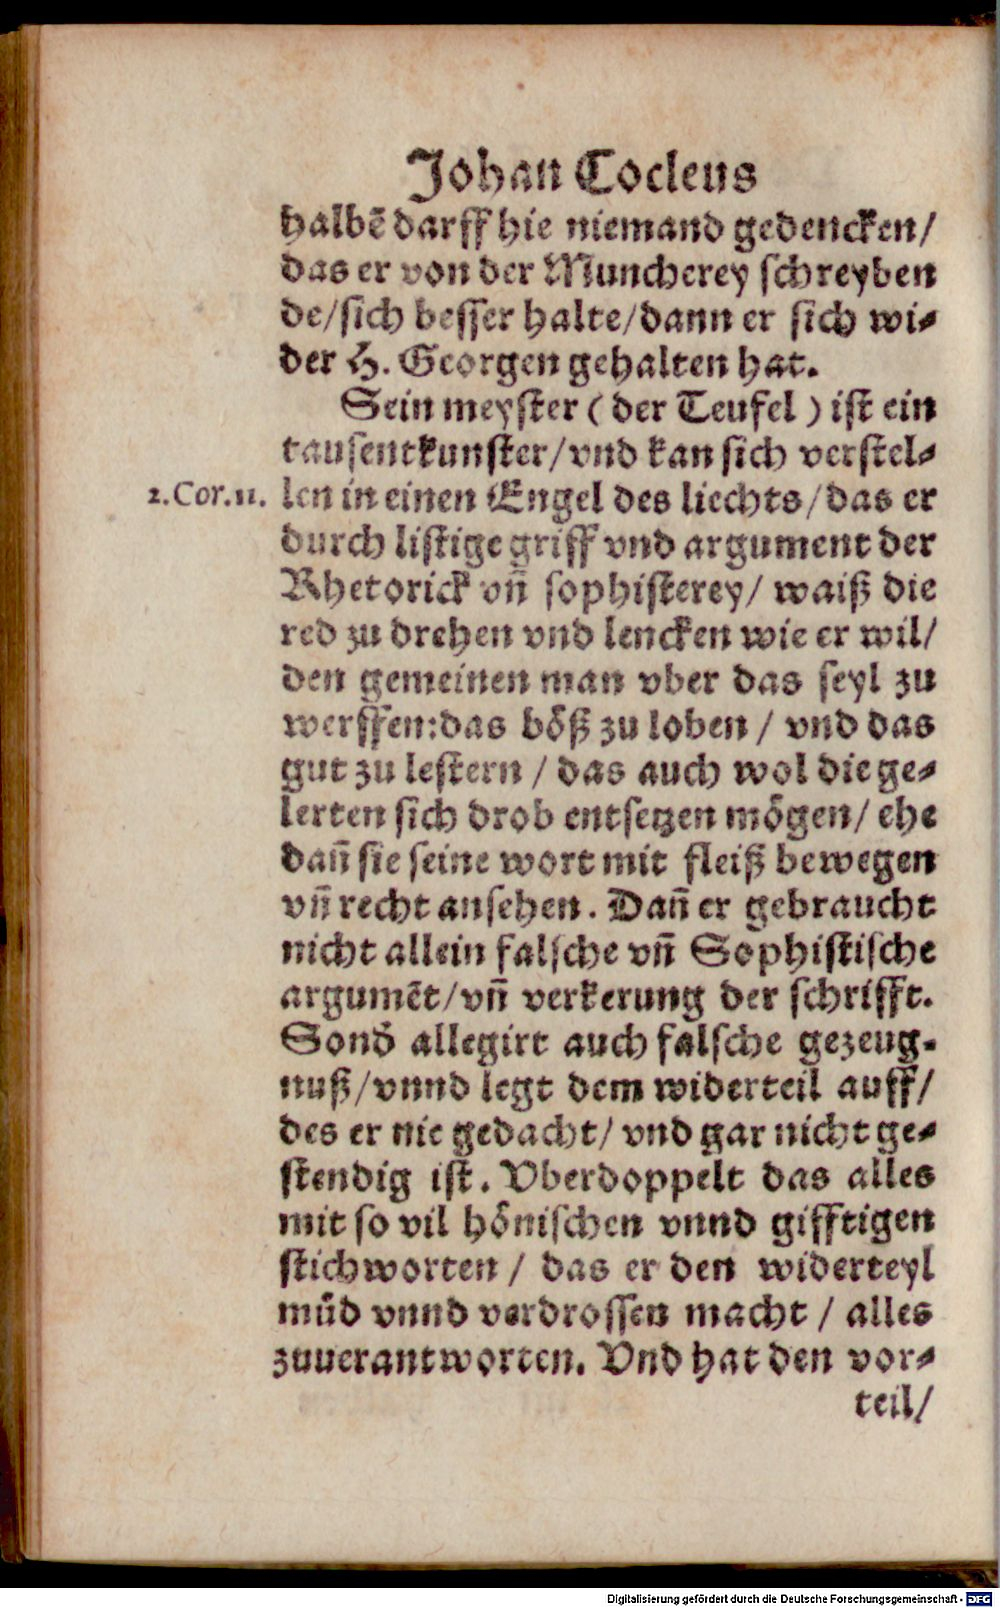 Johan Cocleus
halbē darff hie niemand gedencken/
das er von der Muncherey schreyben
de/sich besser halte/dann er sich wi⸗
der H. Georgen gehalten hat.
Sein meyster (der Teufel) ist ein
tausentkunster/vnd kan sich verstel⸗
2.Cor.11. len in einen Engel des liechts/das er
durch listige griff vnd argument der
Rhetorick vn̄ sophisterey/ waiß die
red zu drehen vnd lencken wie er wil/
den gemeinen man vber das seyl zu
werffen:das böß zu loben / vnd das
gut zu lestern / das auch wol die ge⸗
lerten sich drob entsetzen mögen/ ehe
dan̄ sie seine wort mit fleiß bewegen
vn̄ recht ansehen. Dan̄ er gebraucht
nicht allein falsche vn̄ Sophistische
argumēt/vn̄ verkerung der schrifft.
Sond̄ allegirt auch falsche gezeug⸗
nuß/vnnd legt dem widerteil auff/
des er nie gedacht/ vnd gar nicht ge⸗
stendig ist. Vberdoppelt das alles
mit so vil hönischen vnnd gifftigen
stichworten / das er den widerteyl
müd vnnd verdrossen macht / alles
zuuerantworten. Vnd hat den vor⸗
teil/
Digitalisierung gefördert durch die Deutsche Forschungsgemeinschaft - DFG